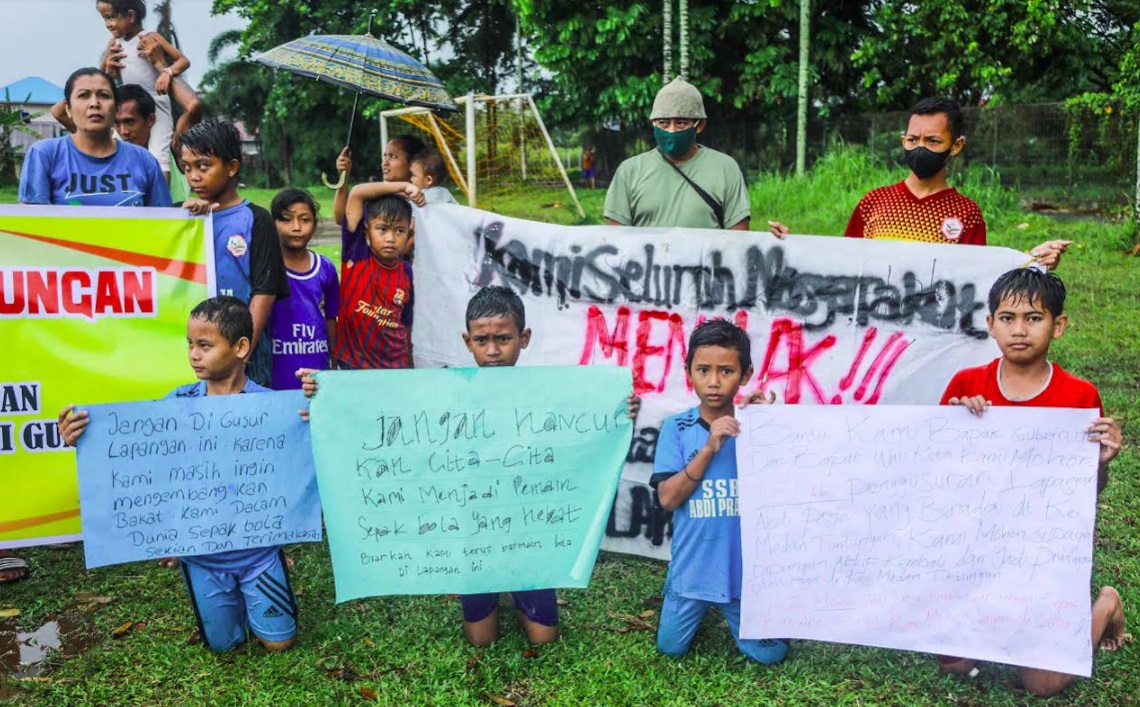 JUST
UNGAN
AN
I GU
Fly
Emirates
Kami Seluruh Masyarakat
MENOLAK!!!
Jangan Di Gusur
Lapangan ini karena
Kami Masih ingin
mengembangkan
Bakat Kami Dalam
Dunia Sepak bola
Sekian Dan Terimakasih
Jangan Hancur
Kan Cita-Cita
Kami Menjadi Pemain
Sepak bola yang Hebat
Biarkan Kami terus bermain bola
Di Lapangan ini
SSB
ABDI PRA
Bantu Kami Bapak Gubernur
Dan Bapak Wali Kota Kami Mohon
Penggusuran Lapangan
Abdi Praja yang Berada di Kec
Medan Tuntungan Kami Mohon supaya
Lapangan Aktif Kembali dan Jadi Prasarana
di Kec Medan Tuntungan